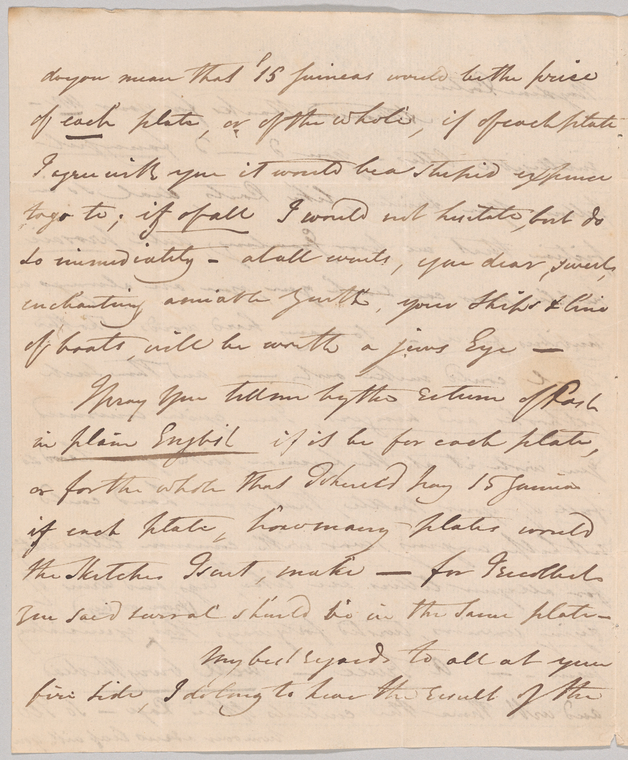 do you mean that 15 Guineas would be the price
of each plate, or of the whole, if of each plate
I agree with you it would be a stupid expence
to go to; if of all I would not hesitate, but do
so immediately - at all events, you dear, sweet,
enchanting amiable your Ships & line
of boats, will be worth a jews Eye —
I pray you tell me by the return of Post
in plain English if it be for each plate,
or for the whole that I should pay 15 Guinea
if each plate, how many plates would
the Sketches I sent, make — for I recollect
you said several should be in the same plate—
My best regards to all at your
fire side, I do long to hear the result of the